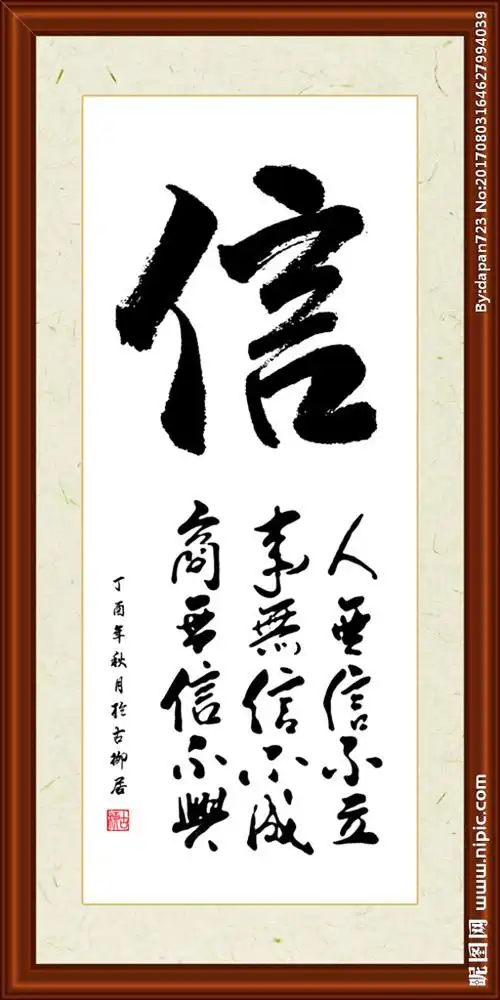 信
人無信不立
事無信不成
商無信不興
丁酉年秋月於古柳居
By:dapan723 No:20170803164627994039
昵图网 www.nipic.com